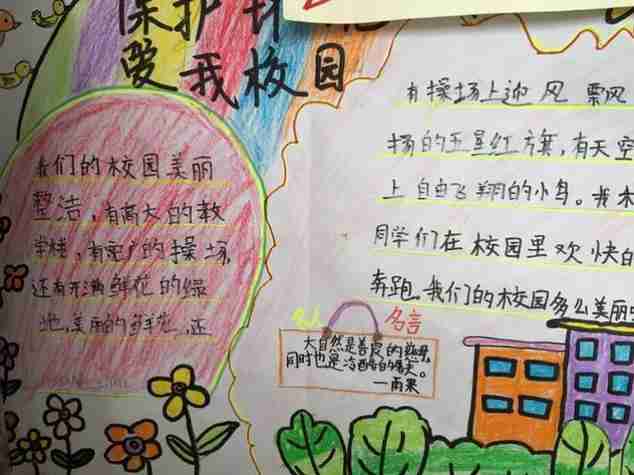 保护
爱我校园
我们的校园美丽
整洁,有高大的教
学楼,有宽广的操场,
还有开满鲜花的绿
地,美丽的鲜花,还
有操场上迎风飘
扬的五星红旗,有天空
上自由飞翔的小鸟。
同学们在校园里欢快的
奔跑。我们的校园多么美丽
名人 名言
大自然是善良的慈母,
同时也是冷酷的屠夫。
—雨果